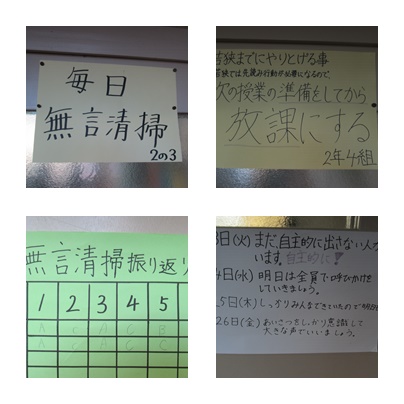 毎日
無言清掃
2の3
若狭までにやりとげる事
若狭では先読み行動が必要になるので、
次の授業の準備をしてから
放課にする
2年4組
無言清掃振り返り
1 2 3 4 5
A C A C B
A C A C C
3日(火) まだ、自主的に出さない人が
います。自主的に!
4日(水) 明日は全員で呼びかけを
していきましょう。
25日(木) しっかりみんなできていたので
26日(金) あいさつをしっかり意識して
大きな声でいいましょう。